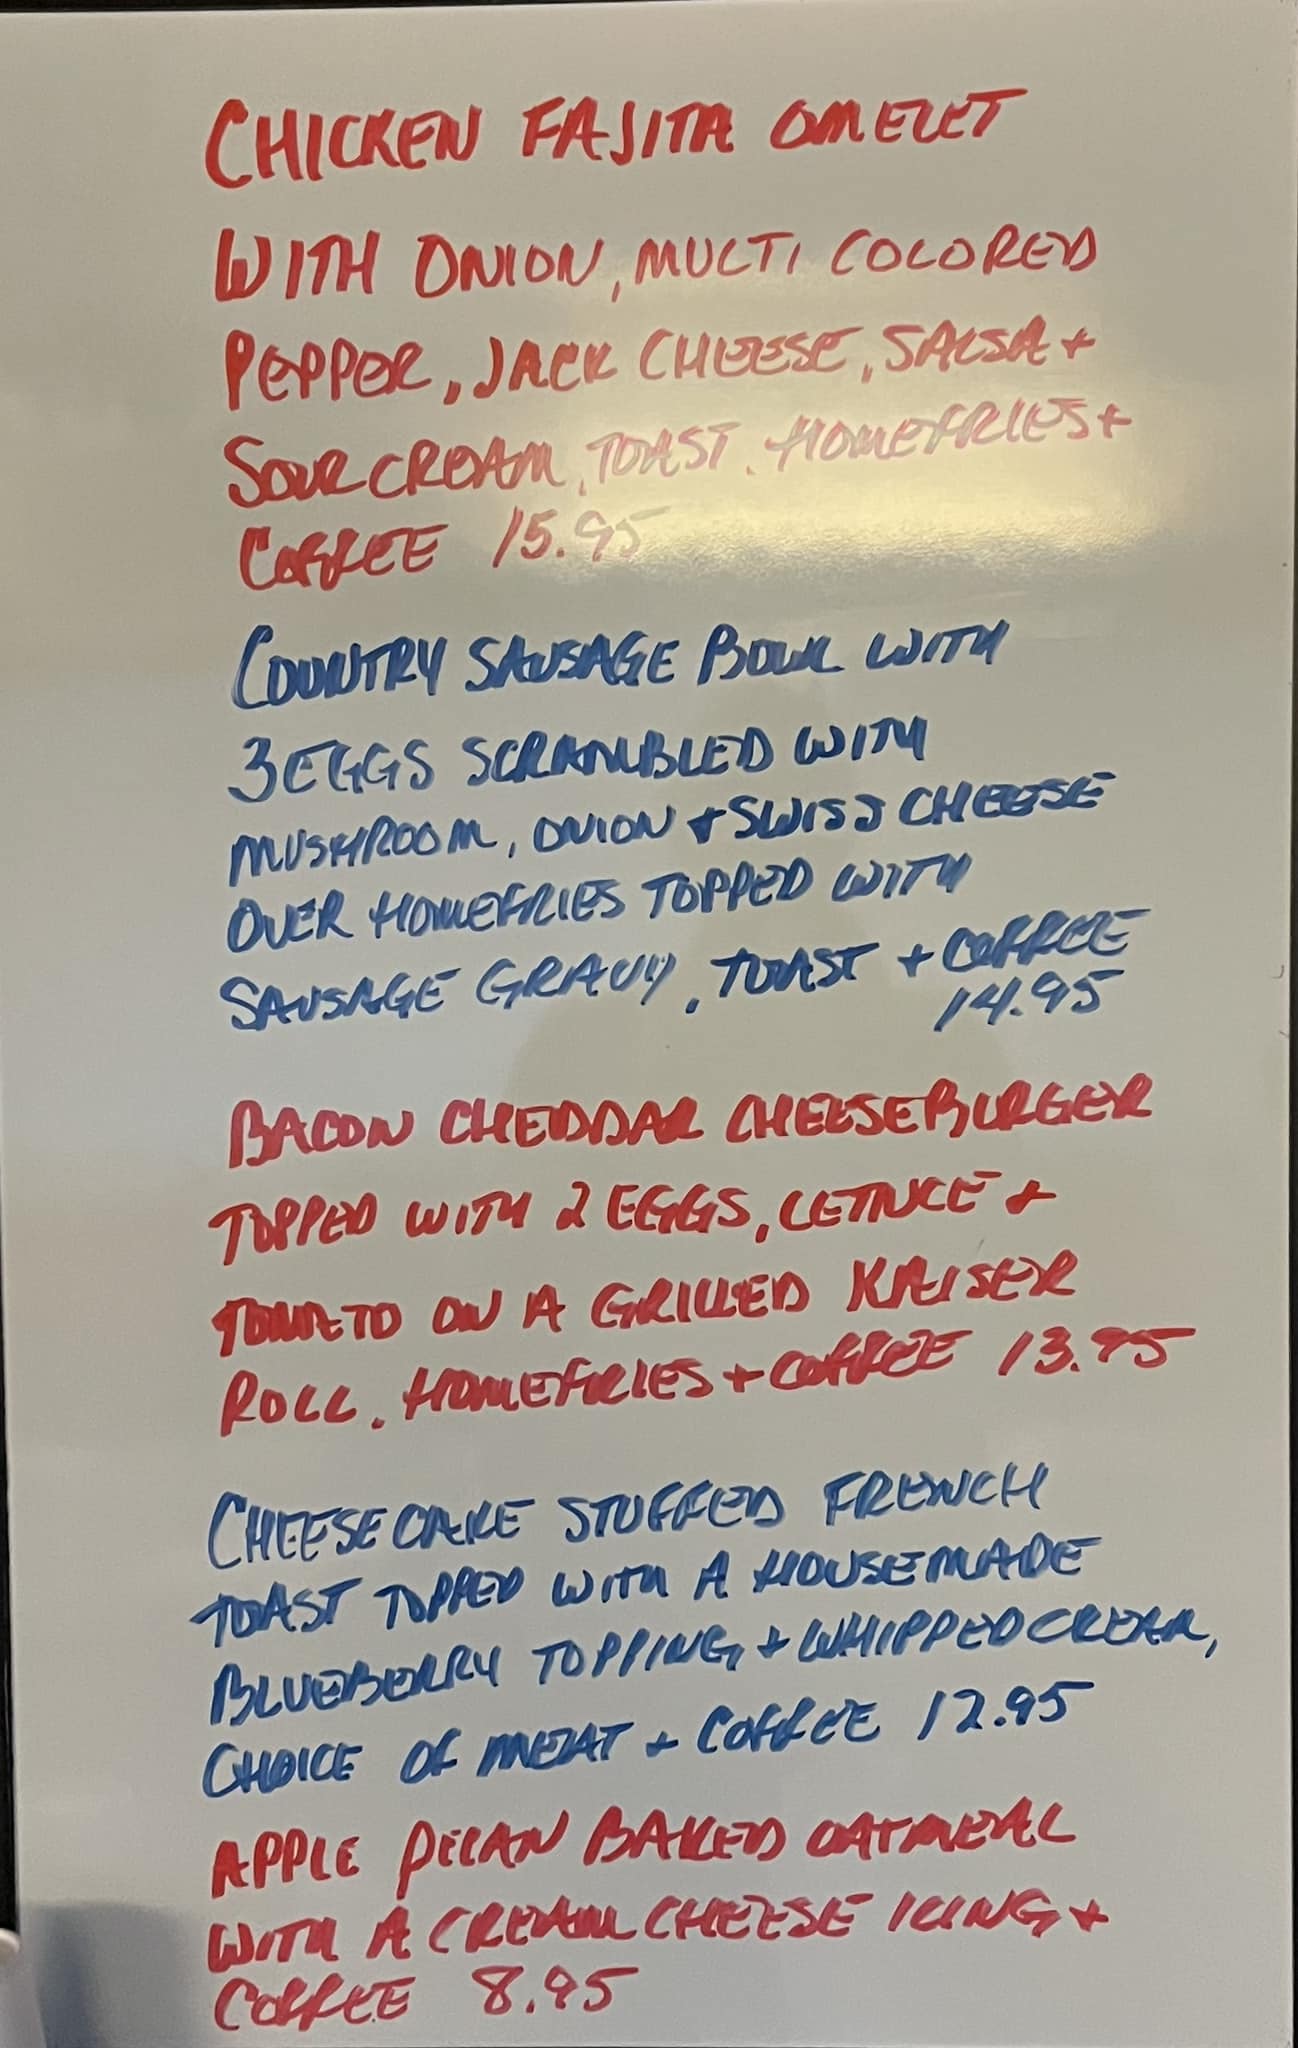 CHICKEN FAJITA OMELET
WITH ONION, MULTI COLORED
PEPPER, JACK CHEESE, SALSA +
SOUR CREAM, TOAST, HOMEFRIES +
COFFEE 15.95
COUNTRY SAUSAGE BOWL WITH
3 EGGS SCRAMBLED WITH
MUSHROOM, ONION + SWISS CHEESE
OVER HOMEFRIES TOPPED WITH
SAUSAGE GRAVY, TOAST + COFFEE
14.95
BACON CHEDDAR CHEESEBURGER
TOPPED WITH 2 EGGS, LETTUCE +
TOMATO ON A GRILLED KAISER
ROLL, HOMEFRIES + COFFEE 13.95
CHEESECAKE STUFFED FRENCH
TOAST TOPPED WITH A HOUSEMADE
BLUEBERRY TOPPING + WHIPPED CREAM,
CHOICE OF MEAT + COFFEE 12.95
APPLE PECAN BAKED OATMEAL
WITH A CREAM CHEESE ICING +
COFFEE 8.95